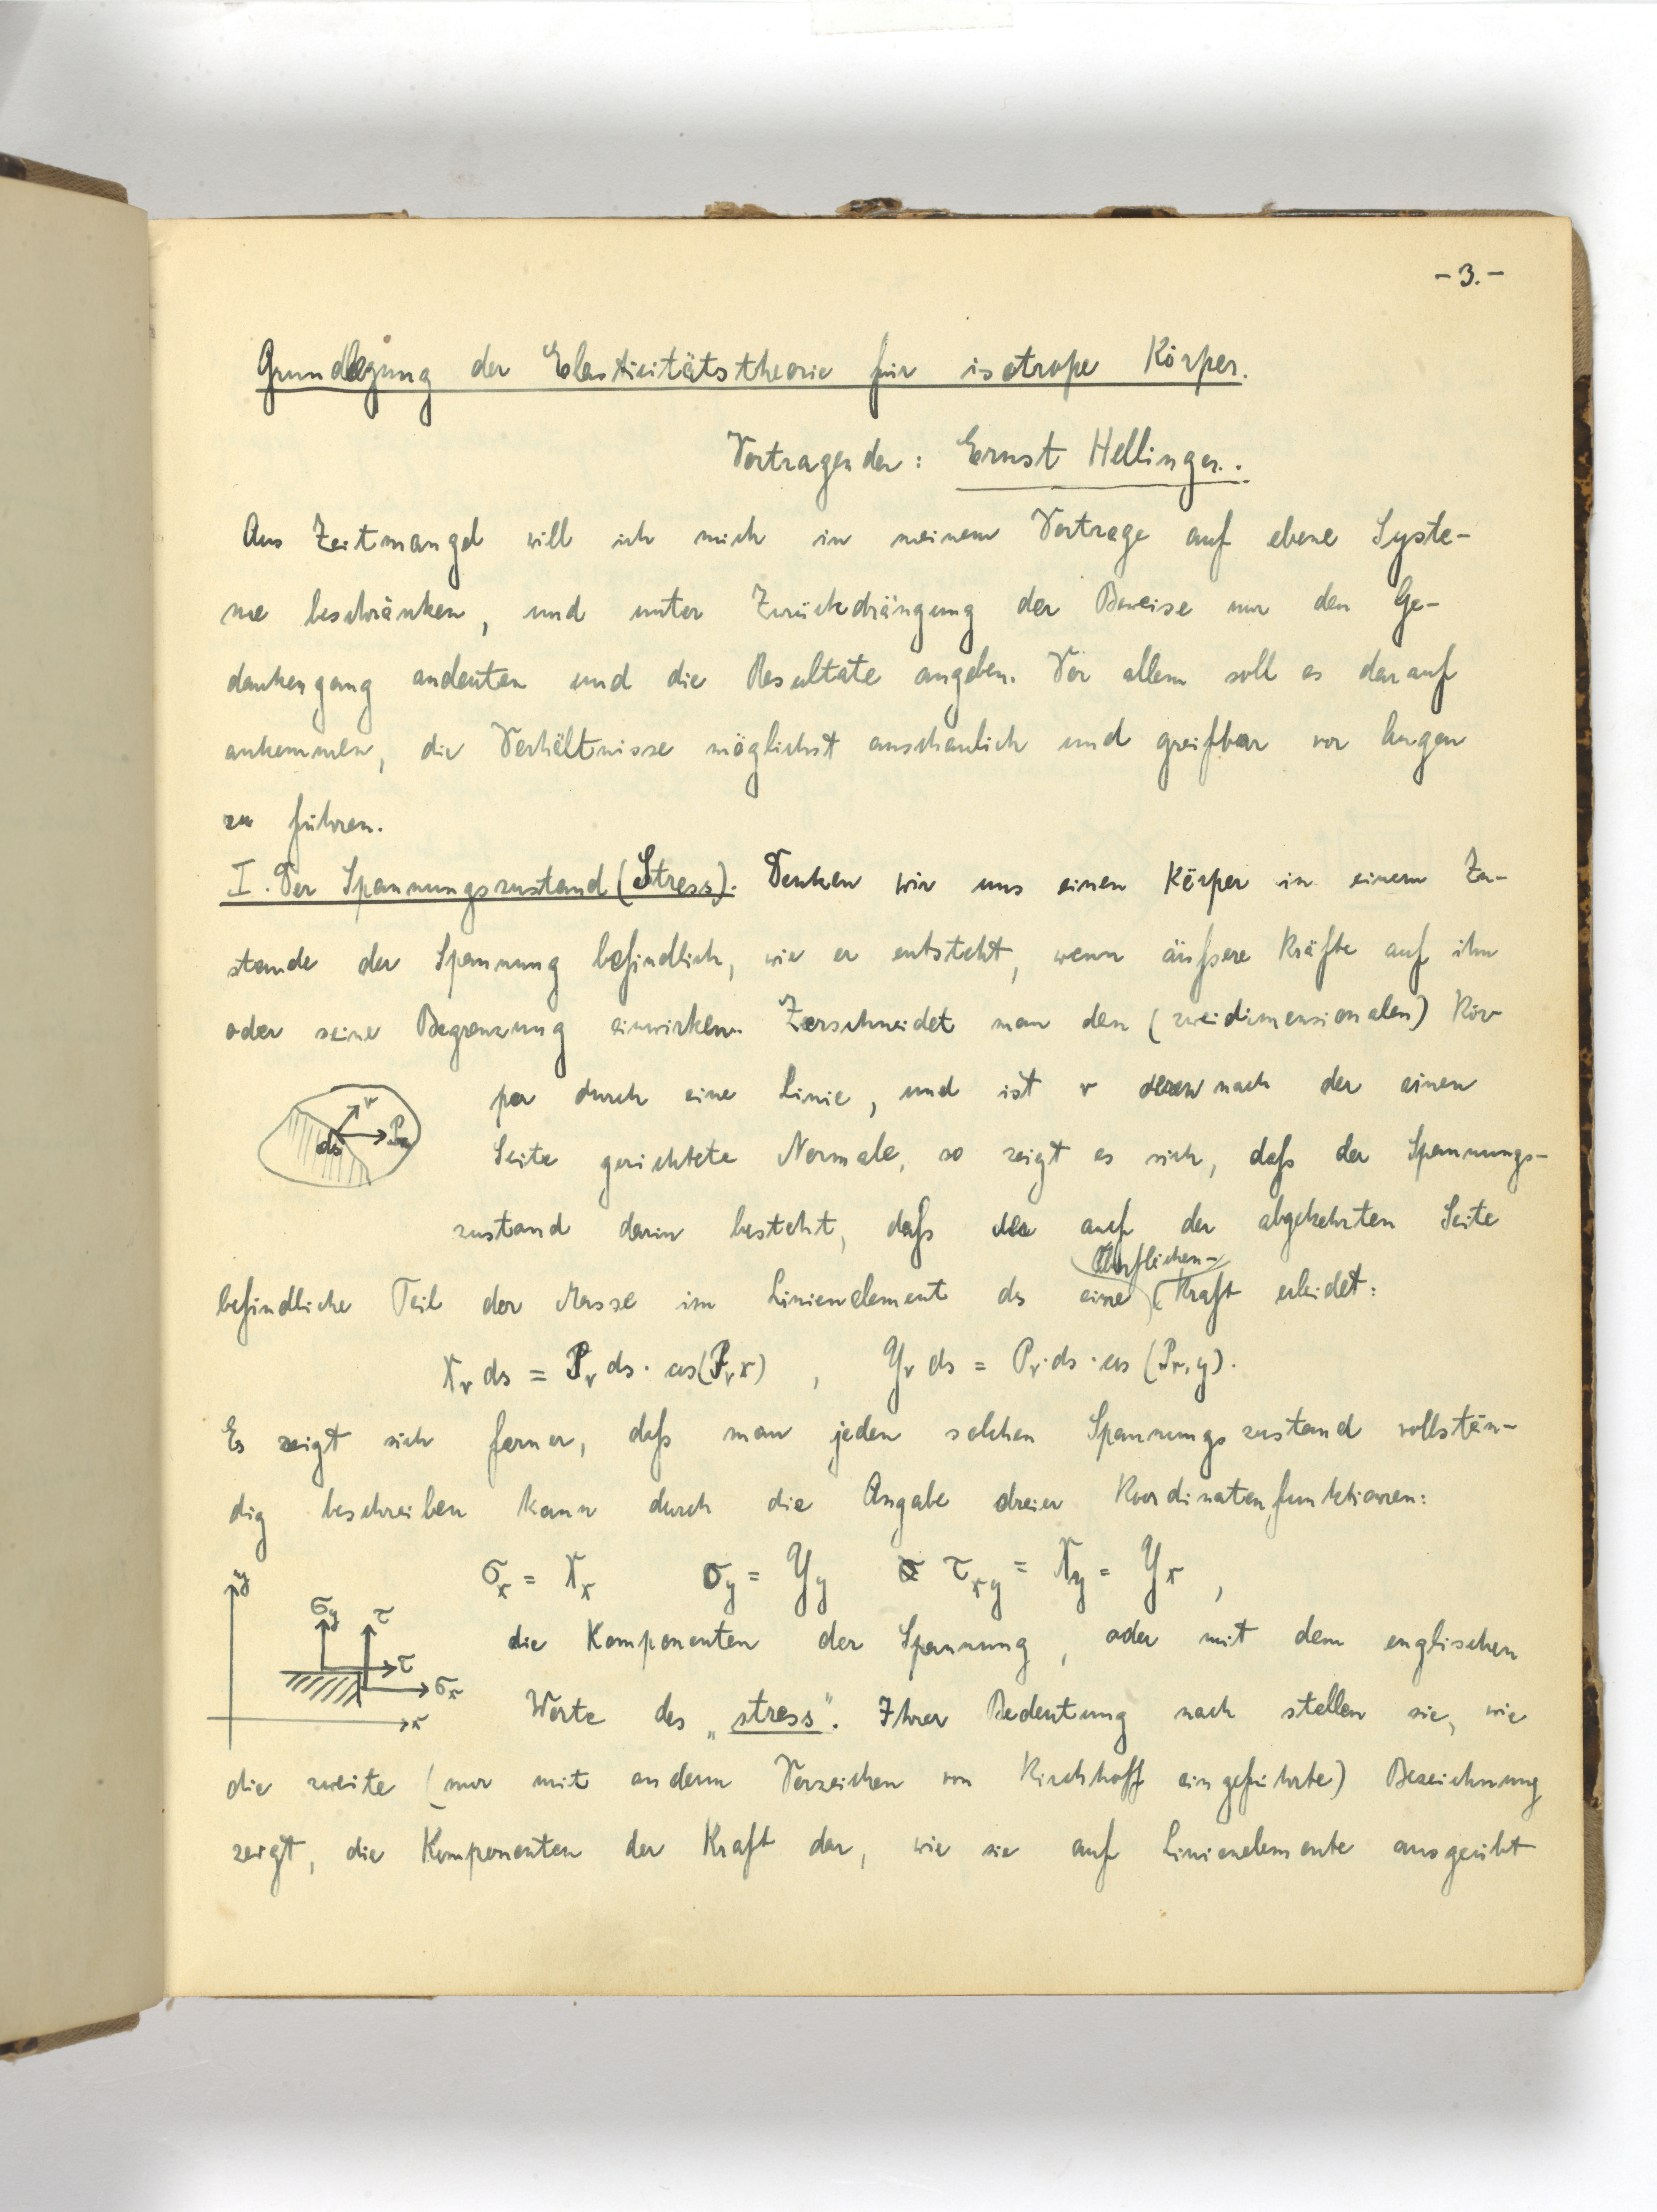 -3.-
Grundlegung der Elasticitätstheorie für isotrope Körper.
Vortragender: Ernst Hellinger.
Aus Zeitmangel will ich mich in meinem Vortrage auf ebene Syste-
me beschränken, und unter Zurückdrängung der Beweise nur den Ge-
dankengang andeuten und die Resultate angeben. Vor allem soll es darauf
ankommen, die Verhältnisse möglichst anschaulich und greifbar vor Augen
zu führen.
I. Der Spannungszustand (Stress). Denken wir uns einen Körper in einem Zu-
stande der Spannung befindlich, wie er entsteht, wenn äußere Kräfte auf ihn
oder seine Begrenzung einwirken. Zerschneidet man den (zweidimensionalen) Kör-
per durch eine Linie, und ist ν deren nach der einen
ν
ds
Pν
Seite gerichtete Normale, so zeigt es sich, daß der Spannungs-
zustand darin besteht, daß der auf der abgekehrten Seite
Oberflächen-
befindliche Teil der Masse im Linienelement ds eine Kraft erleidet:
Xν ds = Pν ds · cos(Pν x) , Yν ds = Pν · ds · cos (Pν, y).
Es zeigt sich ferner, daß man jeden solchen Spannungszustand vollstän-
dig beschreiben kann durch die Angabe dreier Koordinatenfunktionen:
σx = Xx σy = Yy τxy = Xy = Yx ,
y
σy τ
τ
σx
x
die Komponenten der Spannung, oder mit dem englischen
Worte des „stress". Ihrer Bedeutung nach stellen sie, wie
die zweite (nur mit anderm Vorzeichen von Kirchhoff eingeführte) Bezeichnung
zeigt, die Komponenten der Kraft dar, wie sie auf Linienelemente ausgeübt